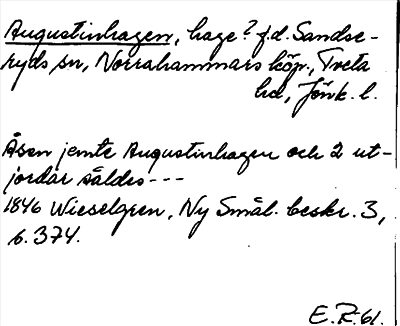 Augustinhagen, hage? f.d. Sandse-
ryds sn, Norrahammars köp., Tveta
hd, Jönk. l.
Åsen jemte Augustinhagen och 2 ut-
jordar såldes ---
1846 Wieselgren, Ny Smål. beskr. 3,
s. 374.
E.R. 61.